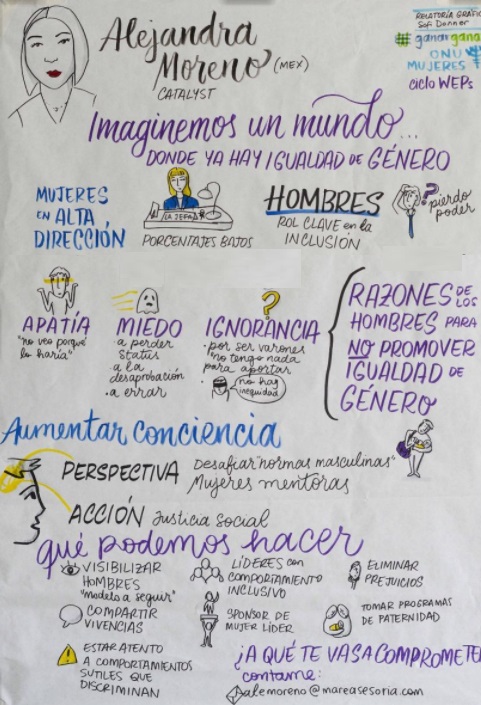 Alejandra
Moreno (MEX)
CATALYST
RELATORÍA GRÁFICA
Sof Donner
#ganarganar
ONU
MUJERES
ciclo WEPs
Imaginemos un mundo...
DONDE YA HAY IGUALDAD DE GÉNERO
MUJERES
en ALTA
DIRECCIÓN
LA JEFA
PORCENTAJES BAJOS
HOMBRES
ROL CLAVE en la
INCLUSIÓN
?
pierdo
poder
APATÍA
"no veo porqué
lo haría"
MIEDO
a perder
status
· a la
desaprobación
· a errar
?
IGNORANCIA
· por ser varones
no tengo nada
para aportar
no hay
inequidad
RAZONES DE
LOS
HOMBRES PARA
NO PROMOVER
IGUALDAD DE
GÉNERO
Aumentar conciencia
PERSPECTIVA Desafiar "normas masculinas"
Mujeres mentoras
ACCIÓN Justicia social
qué podemos hacer
VISIBILIZAR
HOMBRES
"modelo a seguir"
COMPARTIR
VIVENCIAS
ESTAR ATENTO
A COMPORTAMIENTOS
SUTILES QUE
DISCRIMINAN
LÍDERES con
COMPORTAMIENTO
INCLUSIVO
SPONSOR DE
MUJER LÍDER
ELIMINAR
PREJUICIOS
TOMAR PROGRAMAS
DE PATERNIDAD
¿A QUÉ TE VAS A COMPROMETE
contame:
alemoreno@mareasesoria.com